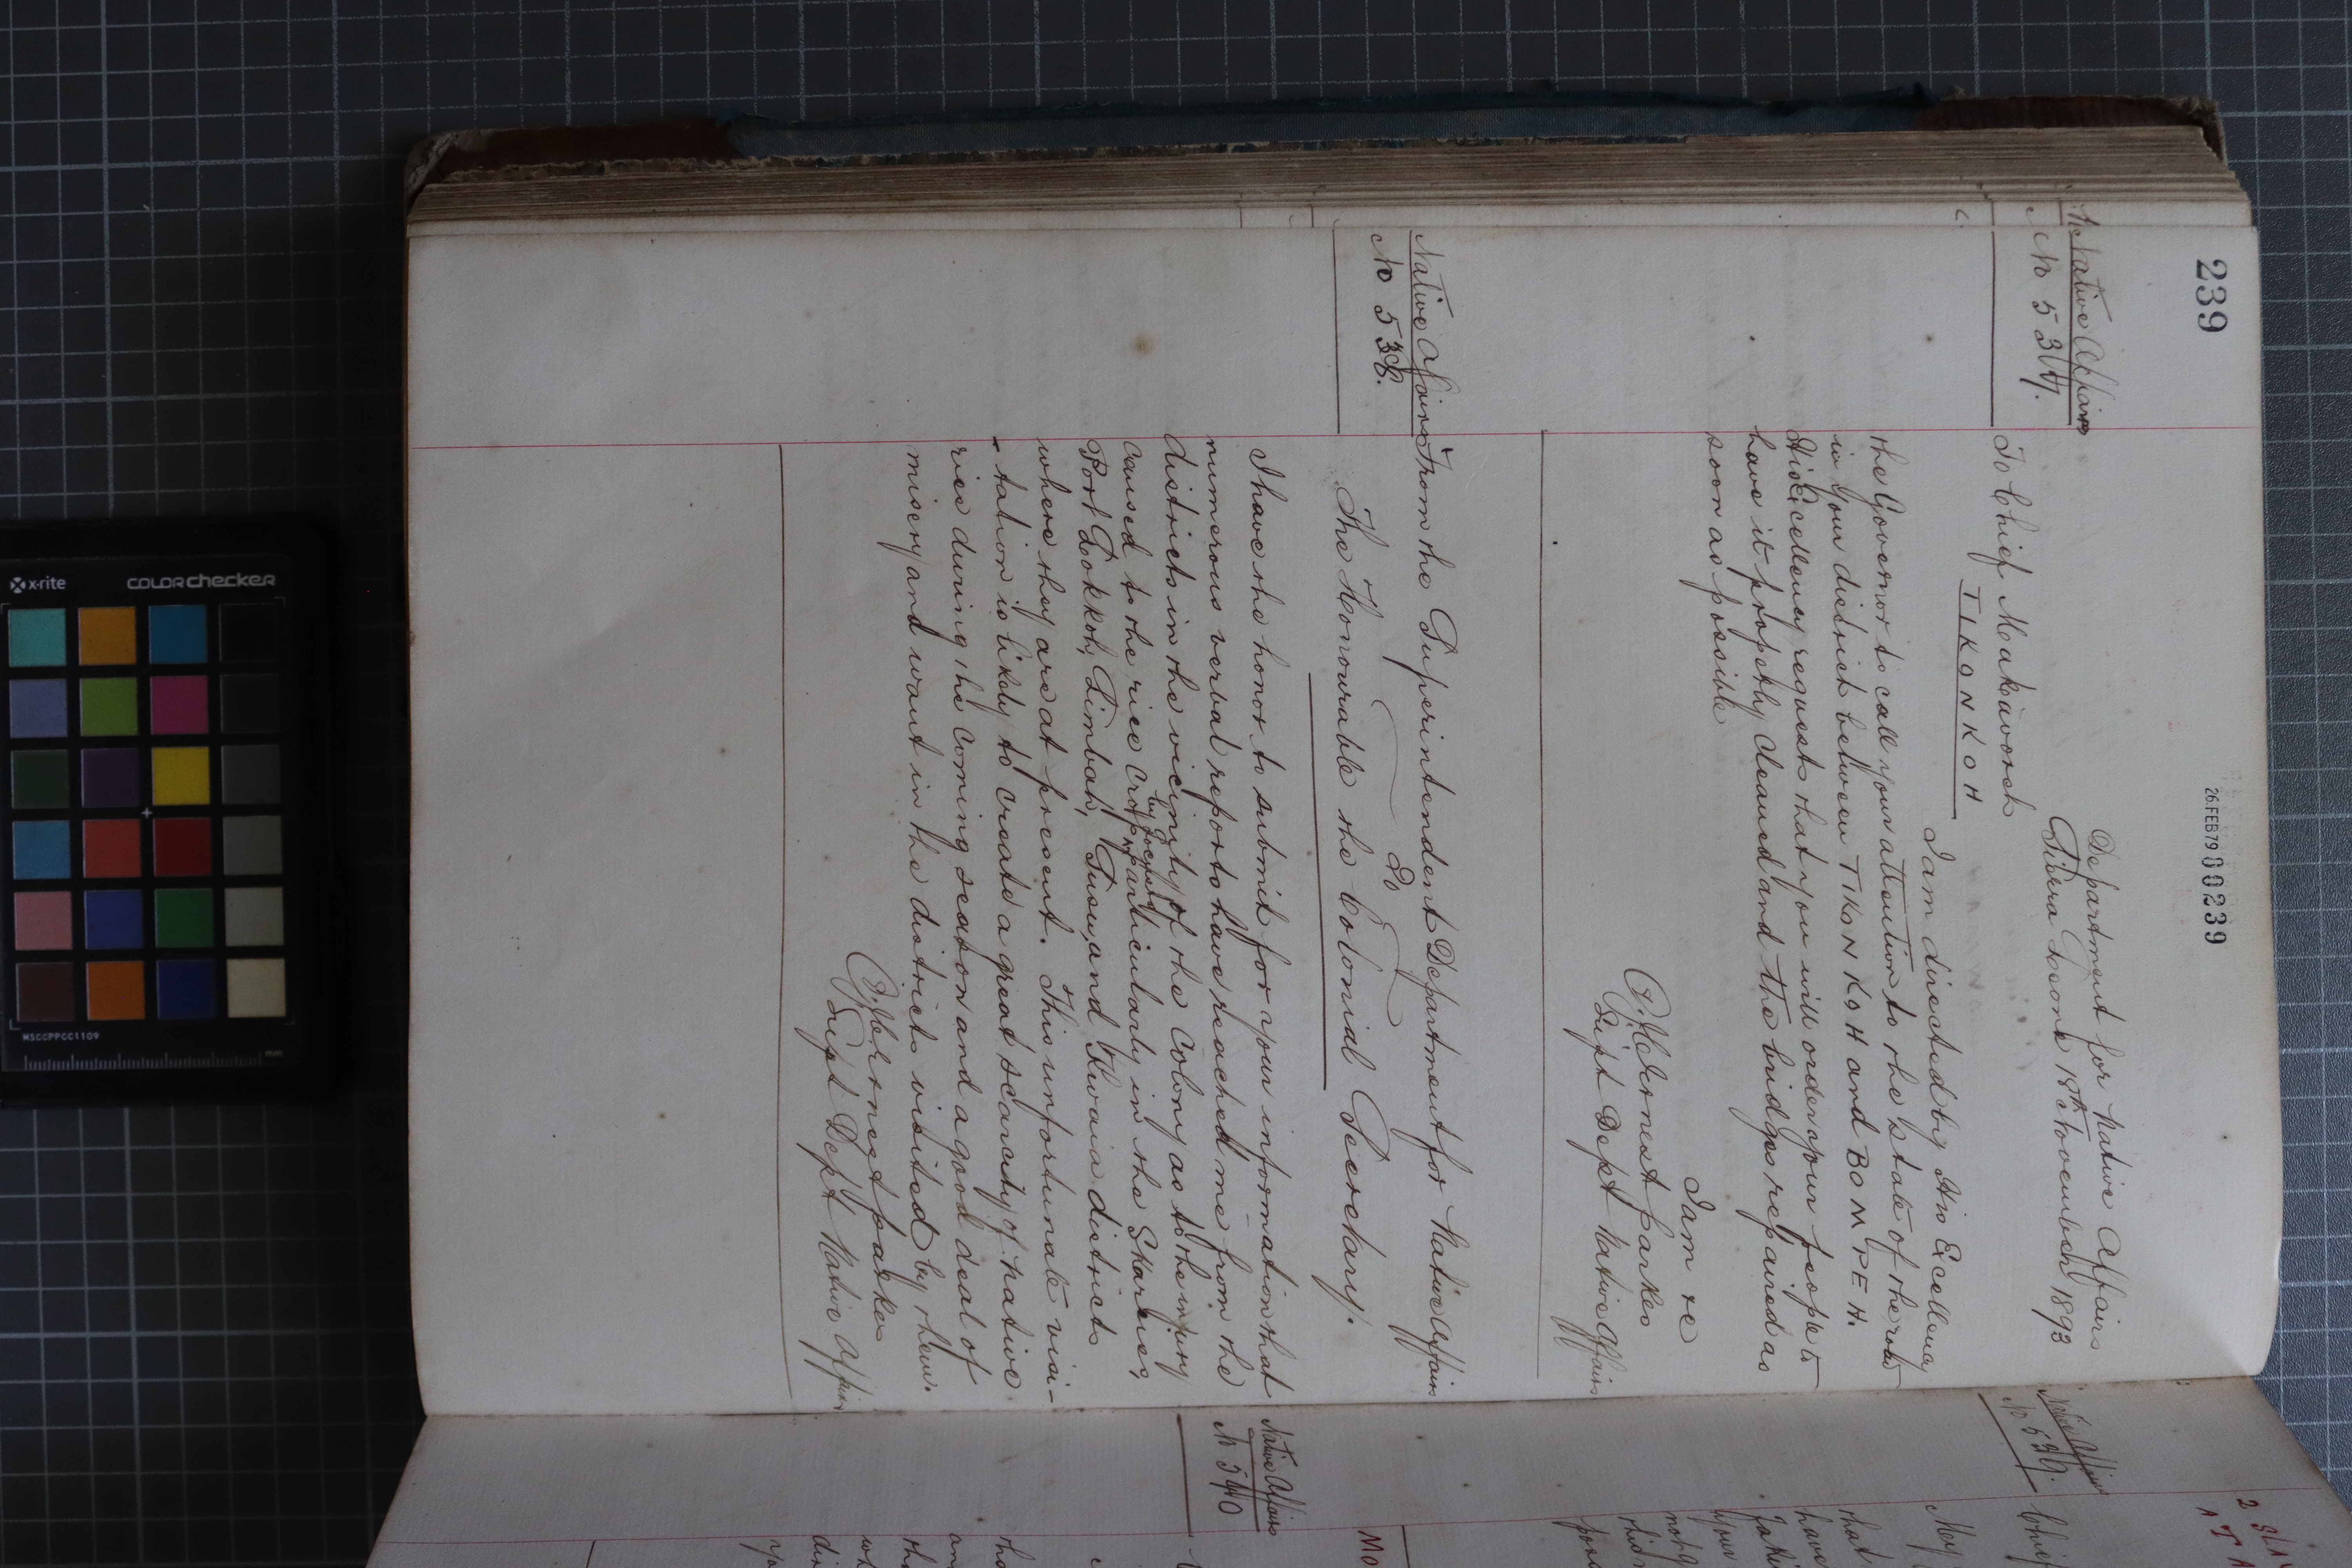 239
26.FEB79 00239
Native Affairs
No 537.
Department for Native Affairs
Sierra Leone 18th November 1893
To Chief Makavoreh
TIKONKOH
I am directed by His Excellency
the Governor to call your attention to the state of the road
in your district between TIKONKOH and BOMPEH.
His Excellency requests that you will order your people to
have it properly cleaned and the bridges repaired as
soon as possible
I am &c
J.C. Ernest Parkes
Supt Dept Native Affairs
Native Affairs
No 538.
From the Superintendent Department for Native Affairs
To
The Honourable the Colonial Secretary.
I have the honor to submit for your information that
numerous verbal reports have reached me from the
districts in the vicinity of the Colony as to the injury
by Locusts
caused to the rice crop particularly in the Skarcies,
Port Lokkoh, Limbah, Susu, and Kwaia districts
where they are at present. This unfortunate visi-
-tation is likely to create a great scarcity of native
rice during the coming season and a good deal of
misery and want in the districts visited by them.
J.C. Ernest Parkes
Supt Dept Native Affairs
Native Affairs
No 539.
Native Affairs
No 540